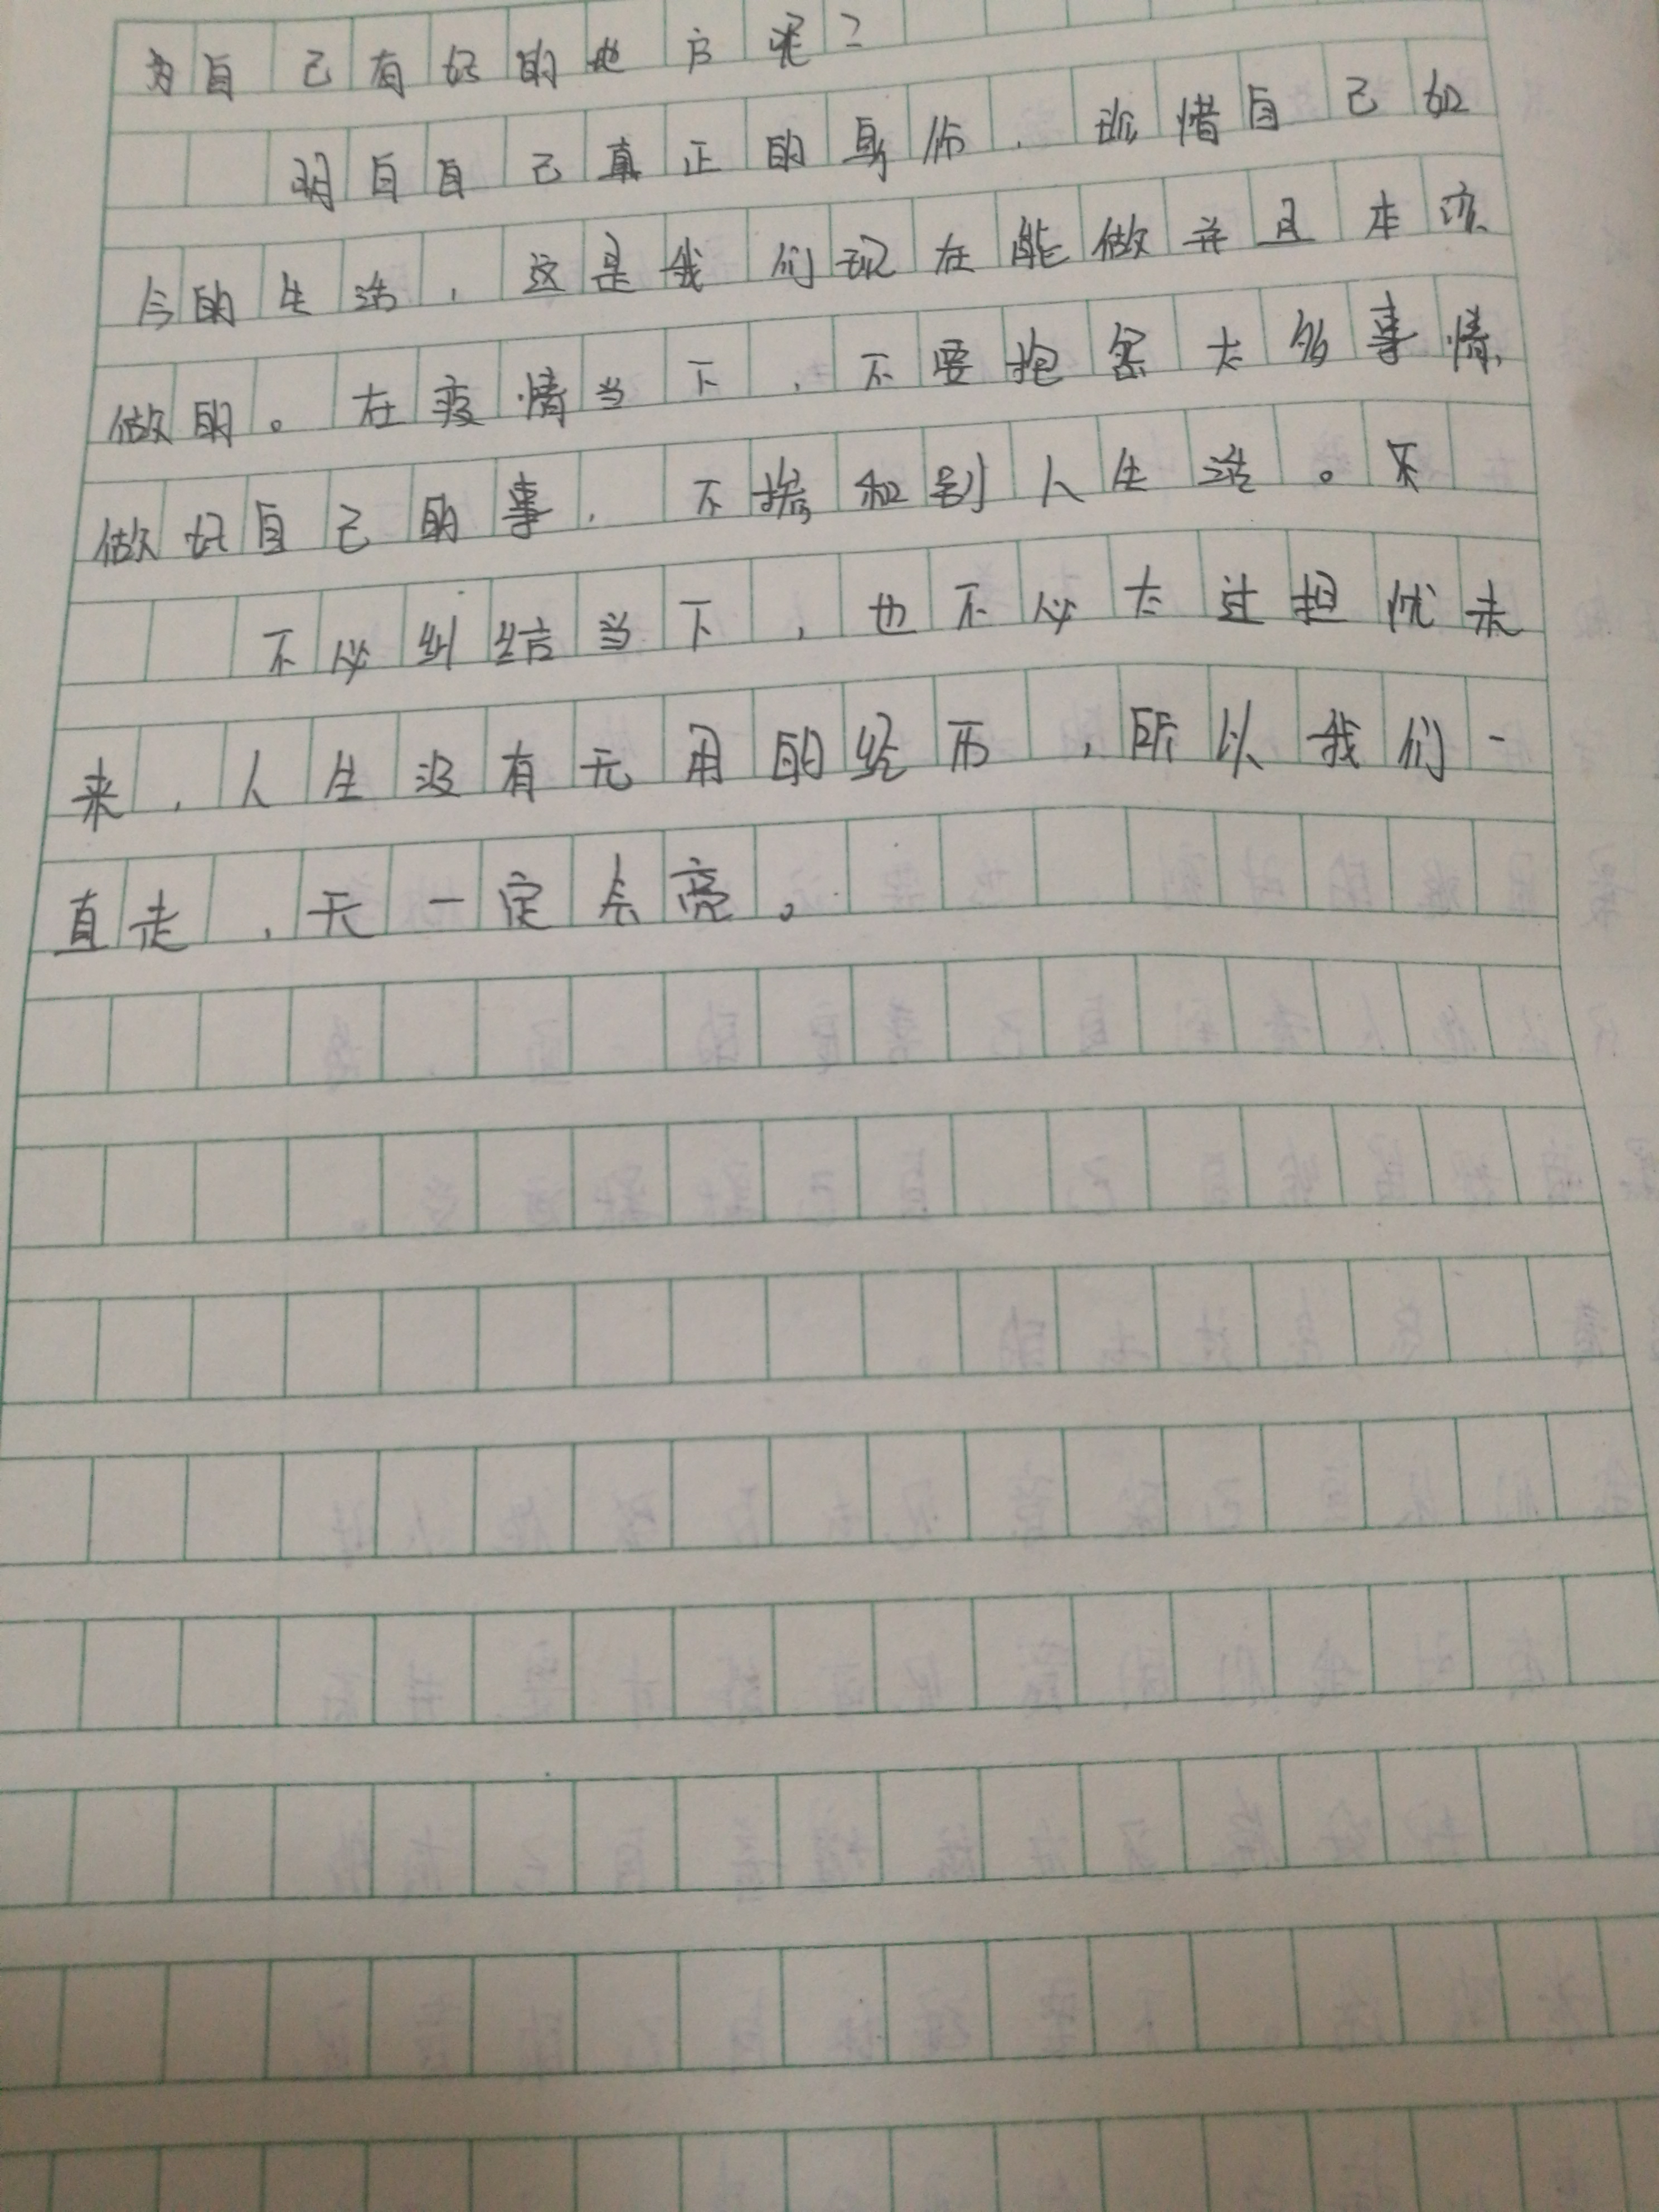 为自己有好的地方呢？
明白自己真正的身份，珍惜自己如
今的生活，这是我们现在能做并且本应
做的。在疫情当下，不要抱怨太多事情，
做好自己的事，不掺和别人生活。不
不必纠结当下，也不必太过担忧未
来，人生没有无用的经历，所以我们一
直走，天一定会亮。